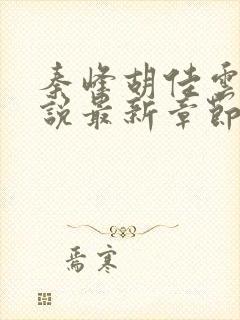 秦峰胡佳雲
說最新章節
焉寒